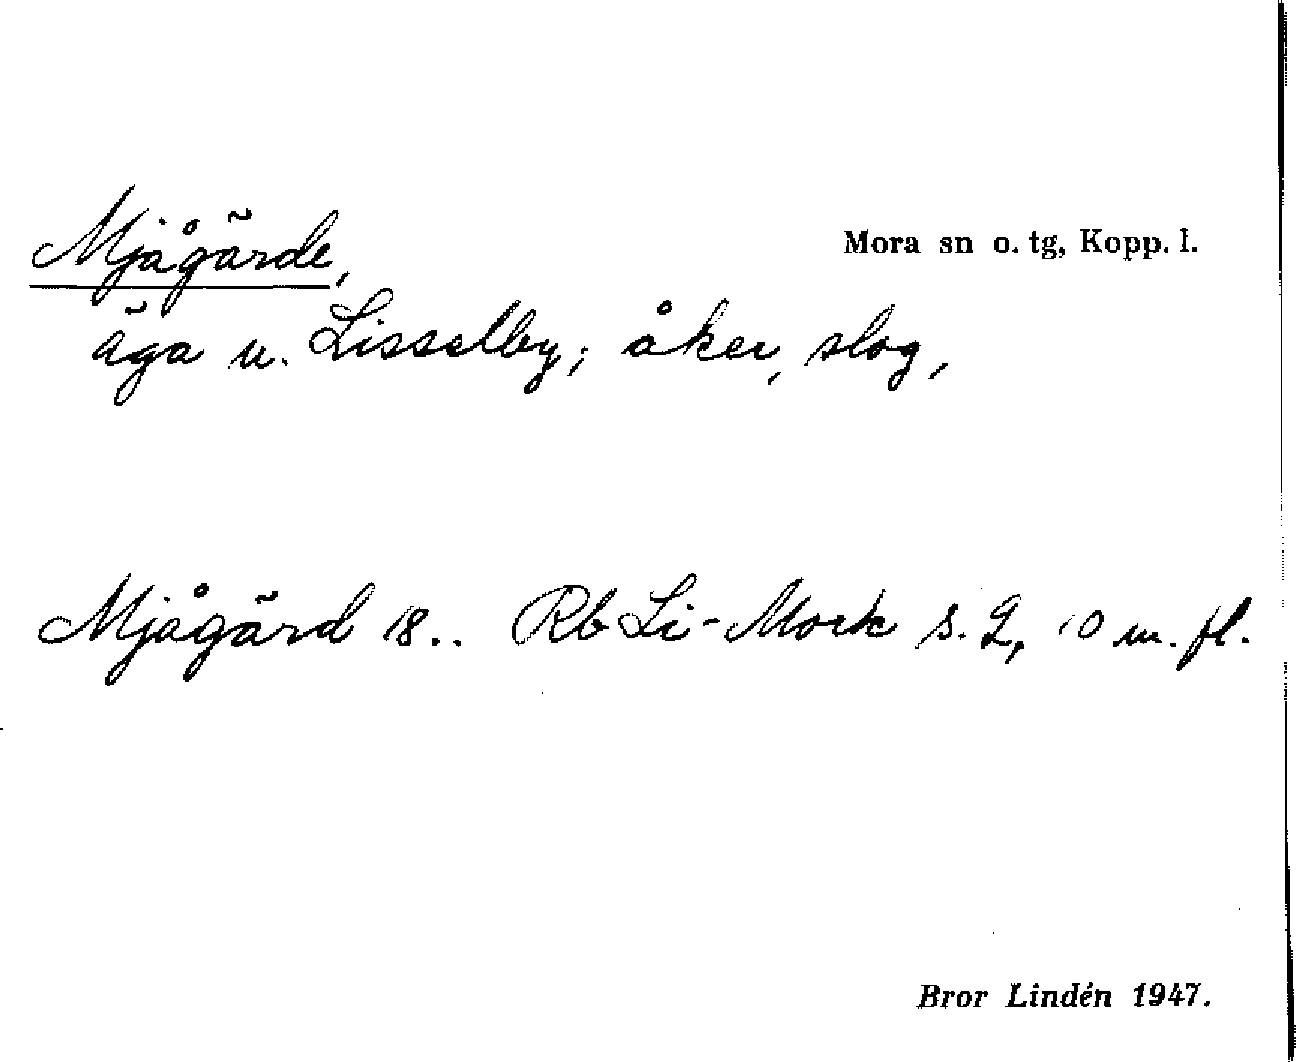 Mjågärde,
Mora sn o. tg, Kopp. l.
äga u. Lisselby; åker, slog,
Mjågärd 18.. Rb Li-Mork s. 9, 10 m. fl.
Bror Lindén 1947.